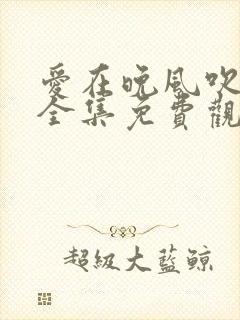 愛在晚風吹
全集免費觀
超級大藍鯨